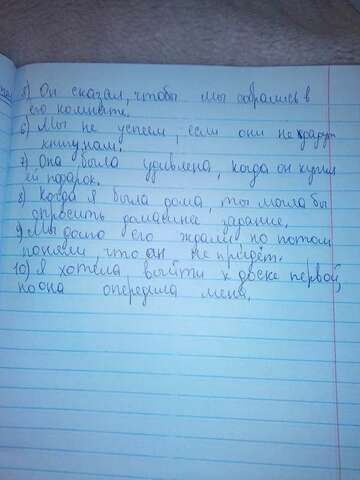 5) Он сказал, чтобы мы собрались в
его комнате.
6) Мы не успеем, если они не
книгу нам.
7) Она была удивлена, когда он купил
ей подарок.
8) Когда я была дома, ты могла бы
спросить домашнее задание.
9. Мы долго его ждали, но потом
поняли, что он не придёт.
10) Я хотела, выйти к доске первой,
но она опередила меня.